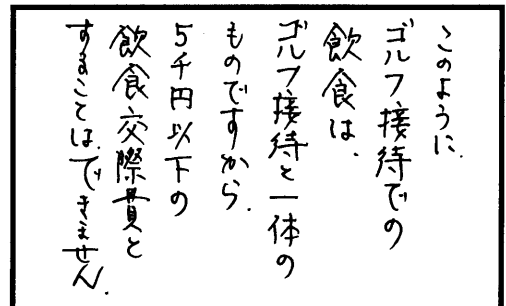 このように、
ゴルフ接待での
飲食は、
ゴルフ接待と一体の
ものですから、
5千円以下の
飲食交際費と
することは、できません。